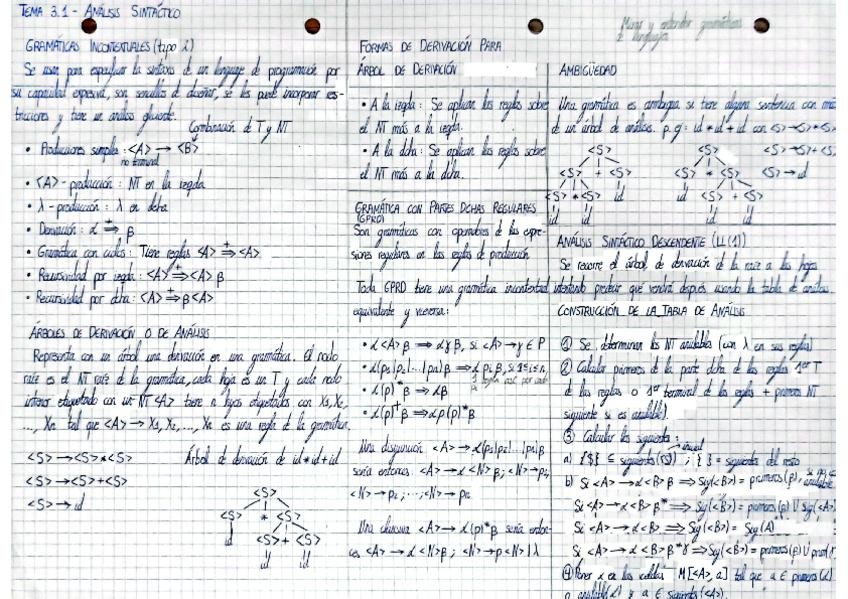 TEMA 3.1 - ANÁLISIS SINTÁCTICO
GRAMÁTICAS INCONTEXTUALES (tipo 2)
Se usan para especificar la sintaxis de un lenguaje de programación por
su capacidad expresiva, son sencillas de diseñar, se les puede incorporar res-
tricciones y tiene un análisis eficiente.
Combinación de T y NT
• Producciones simples: <A> → <B>
no terminal
• <A> - producción: NT en la izqda
• λ - producción: λ en dcha
• Derivación: α ⇒ β
• Gramática con ciclos: Tiene reglas <A> ⇒⁺ <A>
• Recursividad por izqda: <A> ⇒⁺ <A> β
• Recursividad por dcha: <A> ⇒⁺ β <A>
ÁRBOLES DE DERIVACIÓN O DE ANÁLISIS
Representa con un árbol una derivación en una gramática. El nodo
raíz es el NT raíz de la gramática, cada hoja es un T y cada nodo
interior etiquetado con un NT <A> tiene n hijos etiquetados con X1, X2,
..., Xn tal que <A> → X1, X2, ..., Xn es una regla de la gramática.
<S> → <S> * <S>
<S> → <S> + <S>
<S> → id
Árbol de derivación de id * id + id
<S>
<S> * <S>
id <S> + <S>
id id
FORMAS DE DERIVACIÓN PARA
ÁRBOL DE DERIVACIÓN
• A la izqda: Se aplican las reglas sobre
el NT más a la izqda.
• A la dcha: Se aplican las reglas sobre
el NT más a la dcha.
GRAMÁTICA CON PARTES DCHAS REGULARES
(GPRD)
Son gramáticas con operadores de las expre-
siones regulares en las reglas de producción.
Toda GPRD tiene una gramática incontextual
equivalente y viceversa:
• α <A> β ⇒ α γ β, si <A> → γ ∈ P
• α (ρ1|ρ2|...|ρn) β ⇒ α ρi β, si 1 ≤ i ≤ n,
• α (ρ)* β ⇒ α β
• α (ρ)* β ⇒ α ρ (ρ)* β
Una disyunción <A> → α (ρ1|ρ2|...|ρn) β
sería entonces: <A> → α <N> β; <N> → ρ1;
<N> → ρ2; ...; <N> → ρn
Una clausura <A> → α (ρ)* β sería enton-
ces <A> → α <N> β; <N> → ρ <N> | λ
Mirar y entender gramáticas
de lenguajes
AMBIGÜEDAD
Una gramática es ambigua si tiene alguna sentencia con más
de un árbol de análisis. p.ej: id * id + id con <S> → <S> * <S>
<S> → <S> + <S>
<S> → id
<S>
<S> + <S>
<S> * <S> id
id id
<S>
<S> * <S>
id <S> + <S>
id id
ANÁLISIS SINTÁCTICO DESCENDENTE (LL(1))
Se recorre el árbol de derivación de la raíz a las hojas
intentando predecir qué vendrá después usando la tabla de análisis.
CONSTRUCCIÓN DE LA TABLA DE ANÁLISIS
① Se determinan los NT anulables (con λ en sus reglas)
② Calcular primeros de la parte dcha de las reglas 1er T
de las reglas o 1er terminal de las reglas + primeros NT
siguiente si es anulable).
③ Calcular los siguientes:
inicial
a) {$} ⊆ siguientes(<S>) ; { } = siguientes del resto
b) Si <A> → α <B> β ⇒ Sig(<B>) = primeros(β),
Si <A> → α <B> β* ⇒ Sig(<B>) = primeros(β) ∪ Sig(<A>)
Si <A> → α <B> ⇒ Sig(<B>) = Sig(A)
Si <A> → α <B> β* γ ⇒ Sig(<B>) = primeros(β) ∪
④ Poner α en las celdas M[<A>, a] tal que a ∈ primeros(α)
o anulable(α) y a ∈ siguientes(<A>).